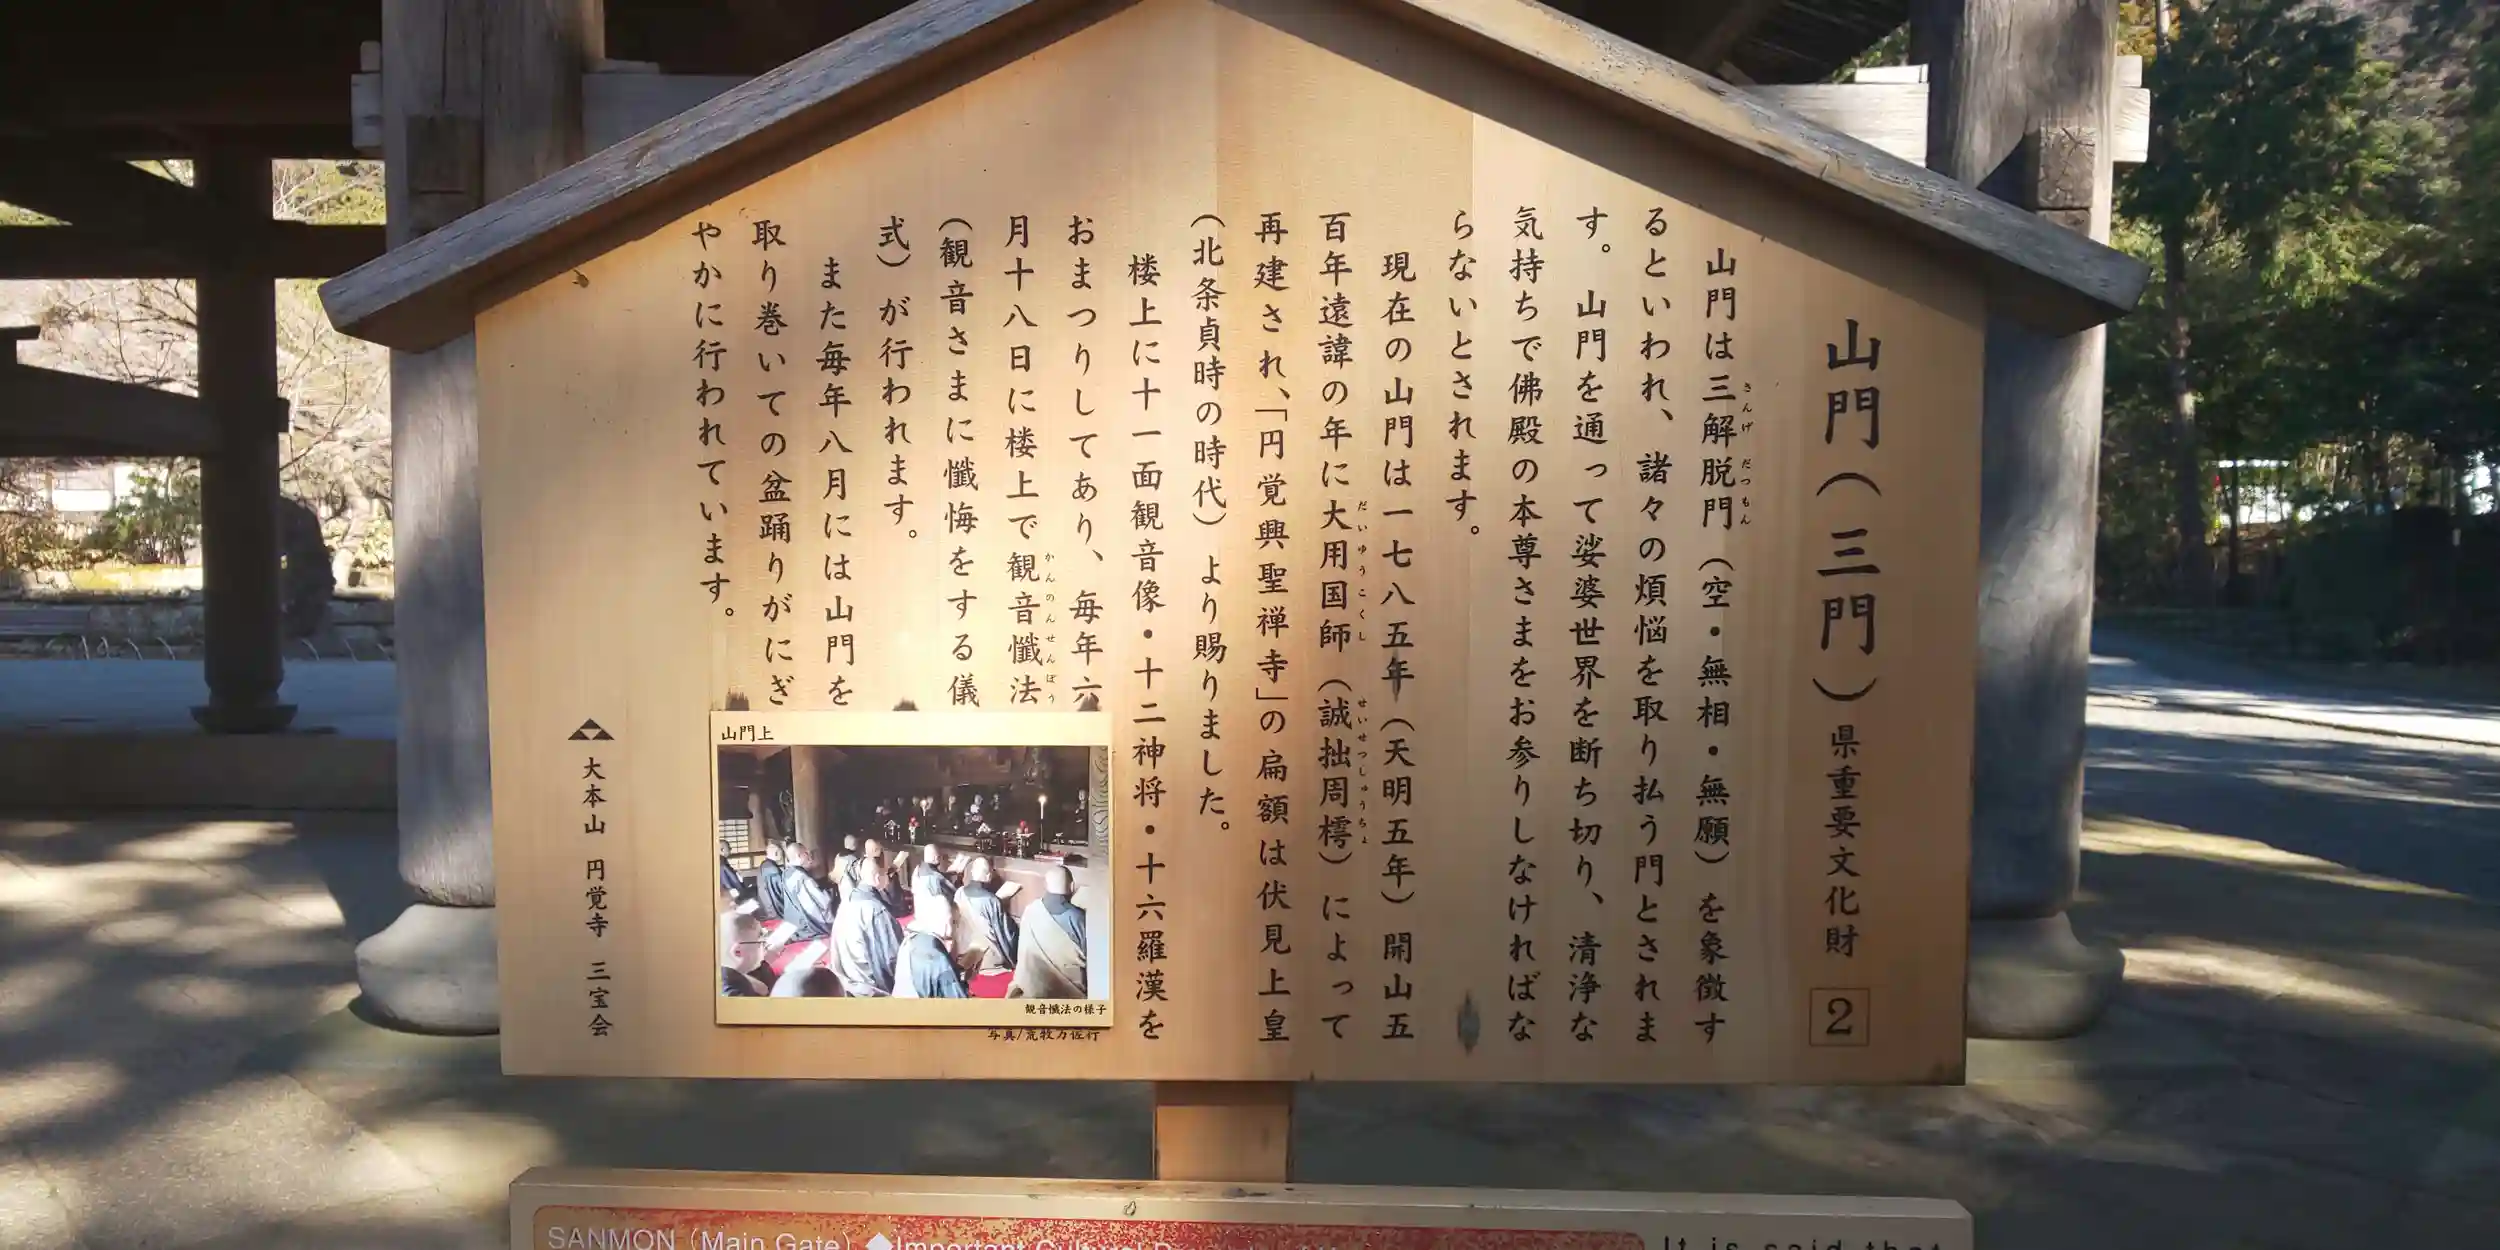 山門（三門）県重要文化財 2
山門は三解脱門（空・無相・無願）を象徴す
さんげ だつもん
るといわれ、諸々の煩悩を取り払う門とされま
す。山門を通って娑婆世界を断ち切り、清浄な
気持ちで佛殿の本尊さまをお参りしなければな
らないとされます。
現在の山門は一七八五年（天明五年）開山五
百年遠諱の年に大用国師（誠拙周樗）によって
だいゆうこくし せいせつしゅうちょ
再建され、「円覚興聖禅寺」の扁額は伏見上皇
（北条貞時の時代）より賜りました。
楼上に十一面観音像・十二神将・十六羅漢を
おまつりしてあり、毎年六
月十八日に楼上で観音懺法
かんのんせんぼう
（観音さまに懺悔をする儀
式）が行われます。
また毎年八月には山門を
取り巻いての盆踊りがにぎ
やかに行われています。
山門上
観音懺法の様子
写真/荒牧万佐行
大本山 円覚寺 三宝会
SANMON（Main Gate）◆Important Cultural
It is said that